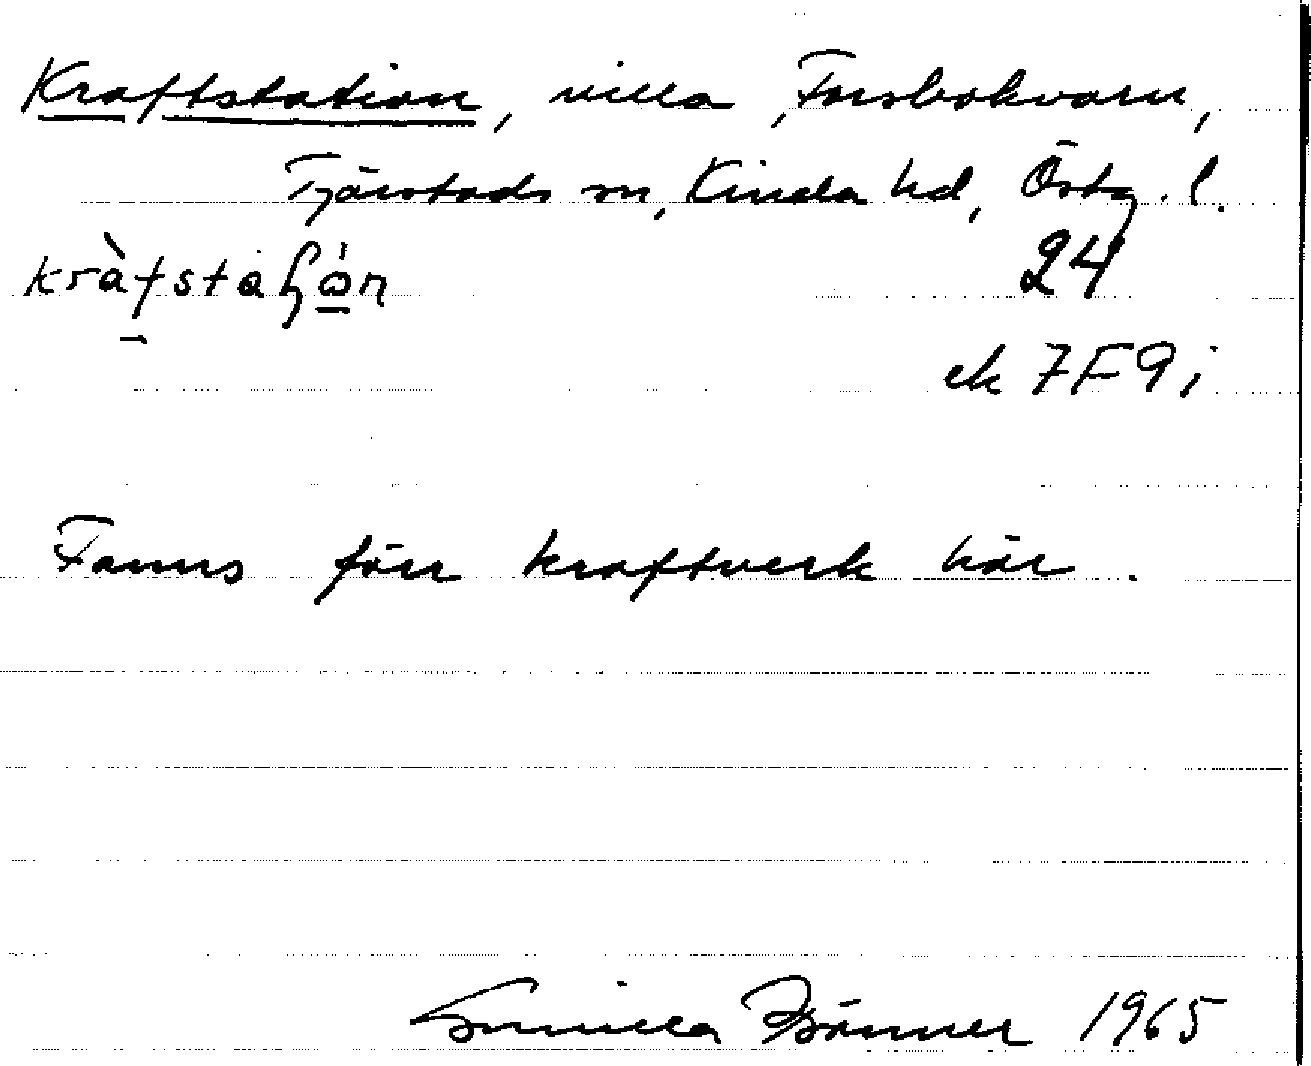 Kraftstation, villa, Forsbokvarn,
Tjärstads sn, Kinda hd, Östg. l.
kràfstaɧón
24
ek 7F9i
Fanns förr kraftverk här.
Gunilla 1965